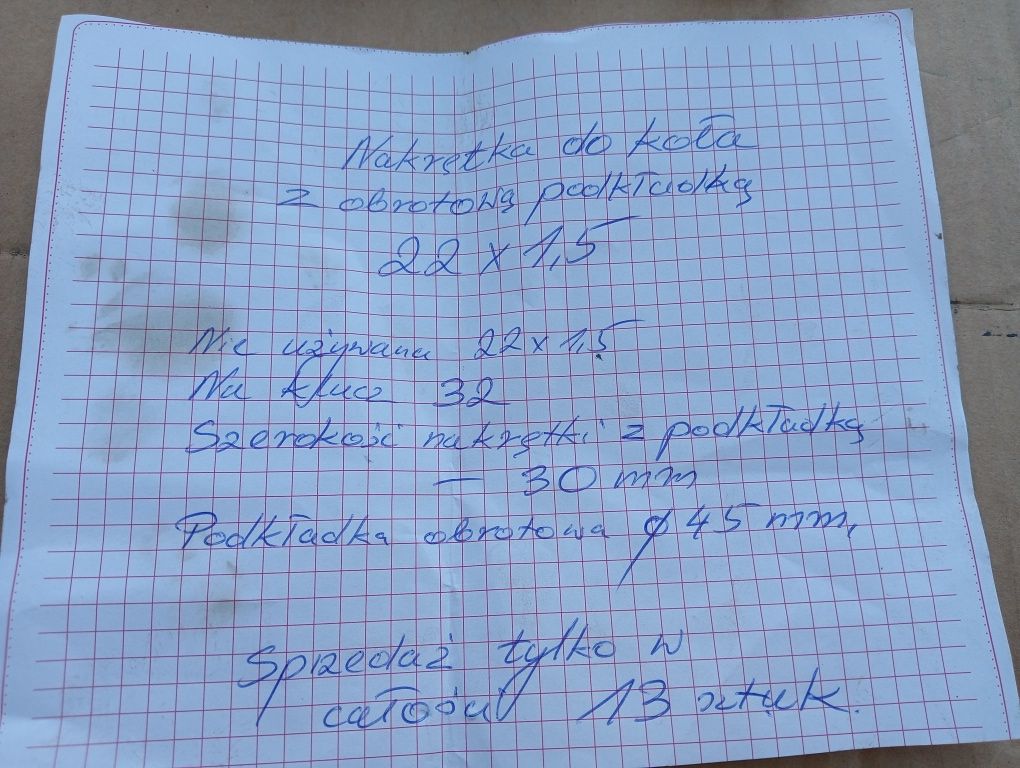 Nakrętka do koła
z obrotową podkładką
22 x 1,5
Nie używana 22 x 1,5
Na klucz 32
Szerokość nakrętki z podkładką
— 30 mm
Podkładka obrotowa ϕ 45 mm,
Sprzedaż tylko w
całości 13 sztuk.